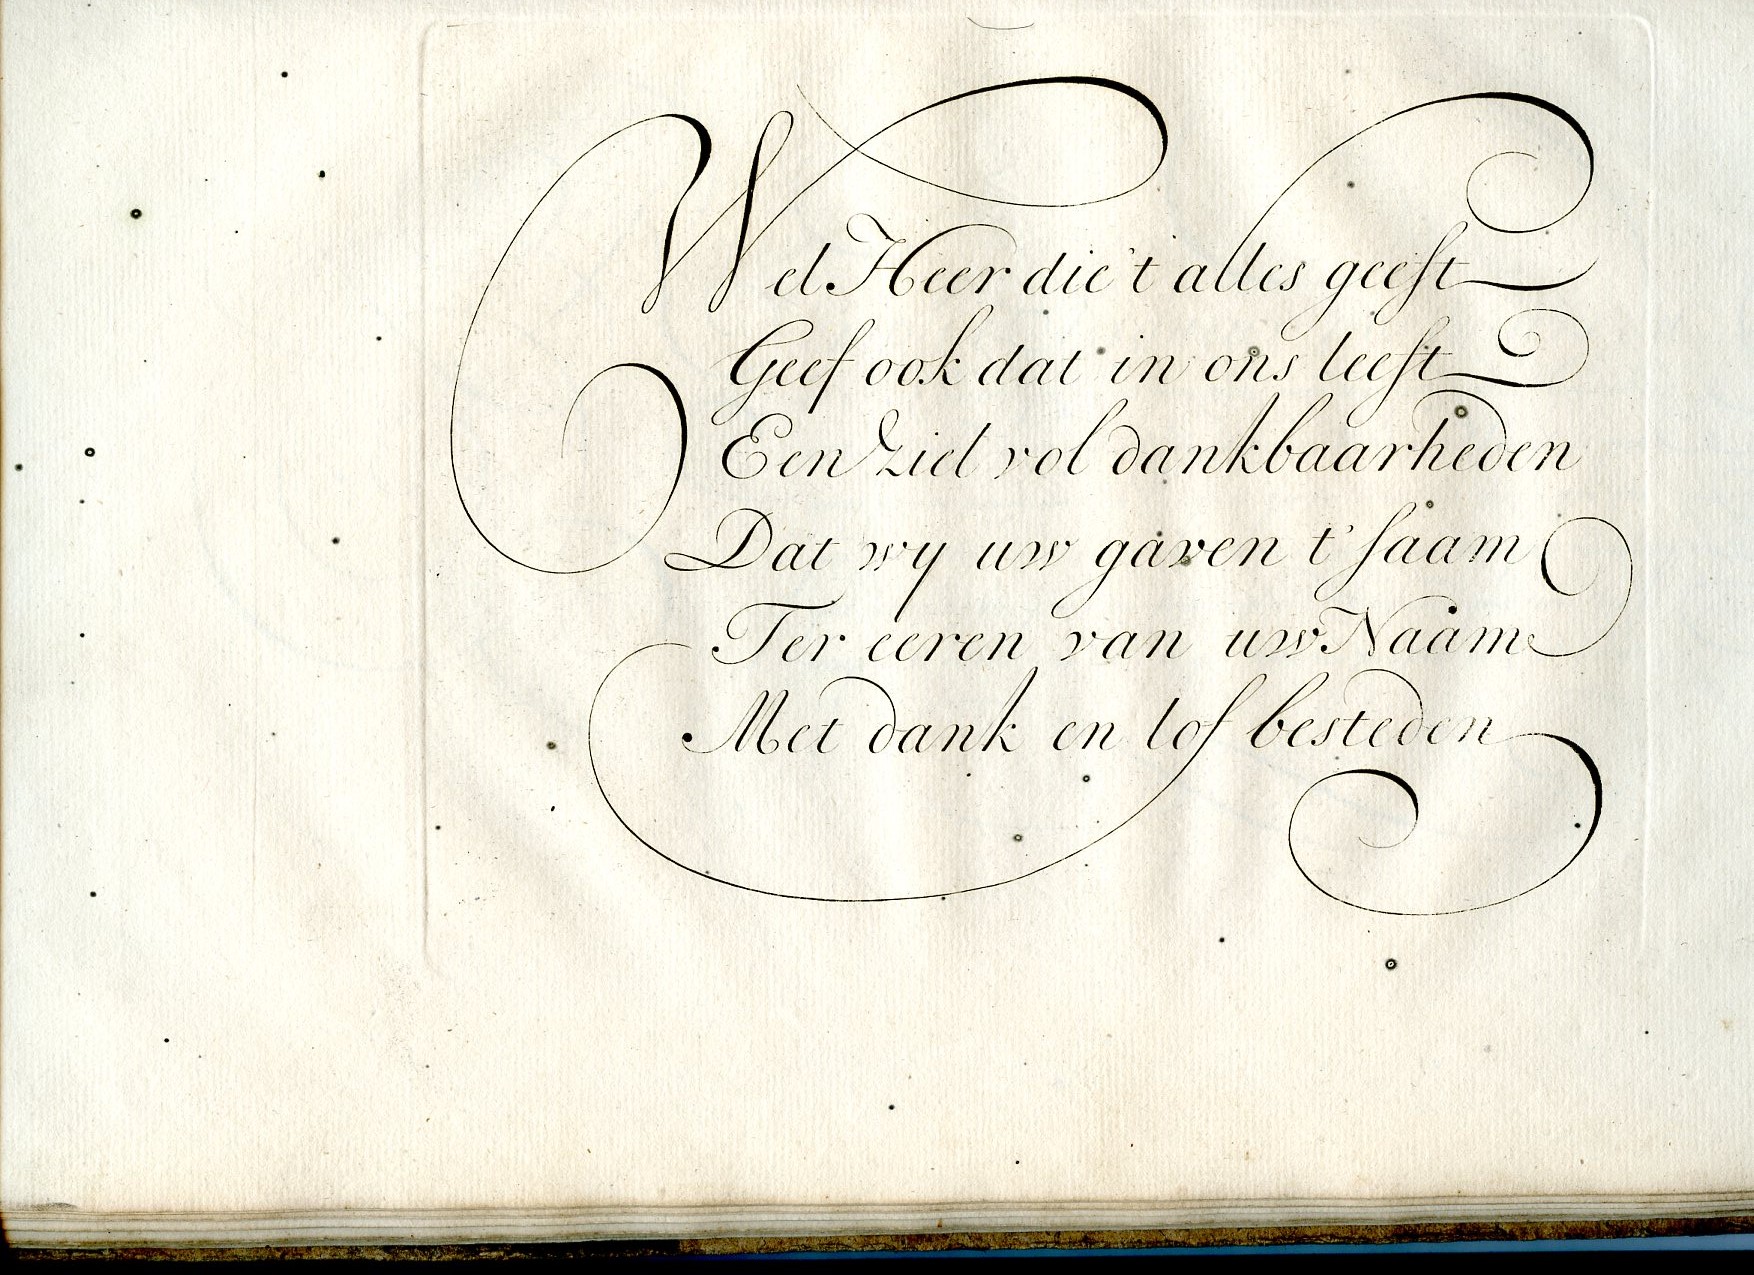 Wel Heer die 't alles geeft
Geef ook dat in ons leeft
Een ziel vol dankbaarheden
Dat wy uw gaven t' saam
Ter eeren van uw Naam
Met dank en lof besteden